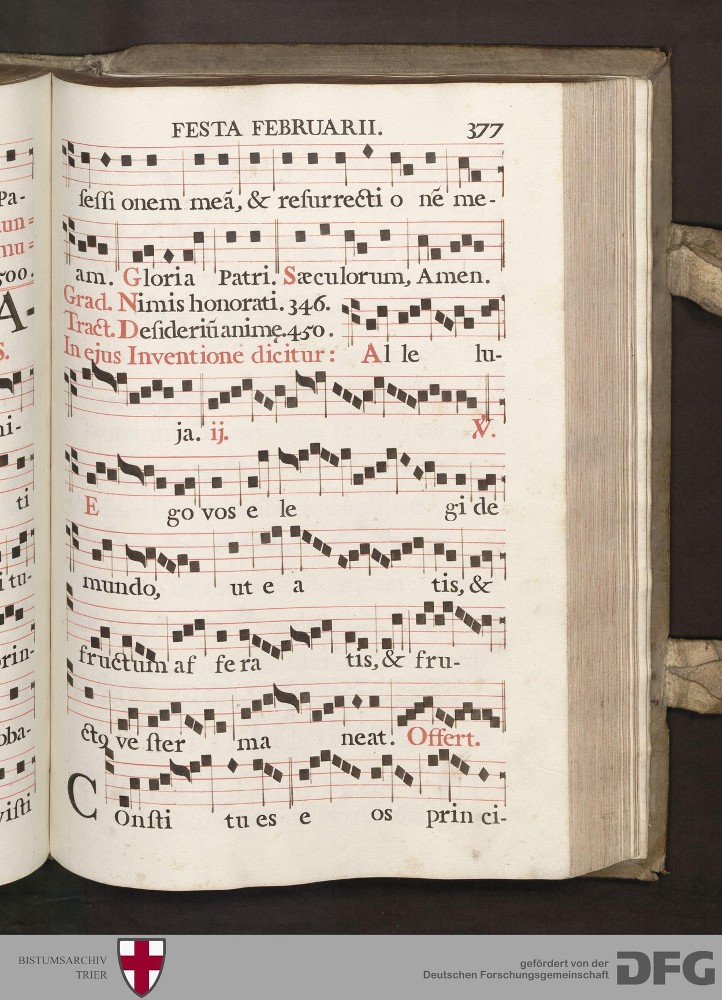 FESTA FEBRUARII. 377
ſeſſi onem meã, & reſurrecti o nẽ me-
am. Gloria Patri. Sæculorum, Amen.
Grad. Nimis honorati. 346.
Tract. Deſideriũ animę. 450.
In ejus Inventione dicitur: Al le lu-
ja. ij. ℣.
E go vos e le gi de
mundo, ut e a tis, &
fructum af fe ra tis, & fru-
ctꝯ ve ſter ma neat. Offert.
COnſti tu es e os prin ci-
Pa-
500.
A-
S.
ni-
ti
i tu-
prin-
oba-
viſti
BISTUMSARCHIV
TRIER
gefördert von der
Deutschen Forschungsgemeinschaft
DFG